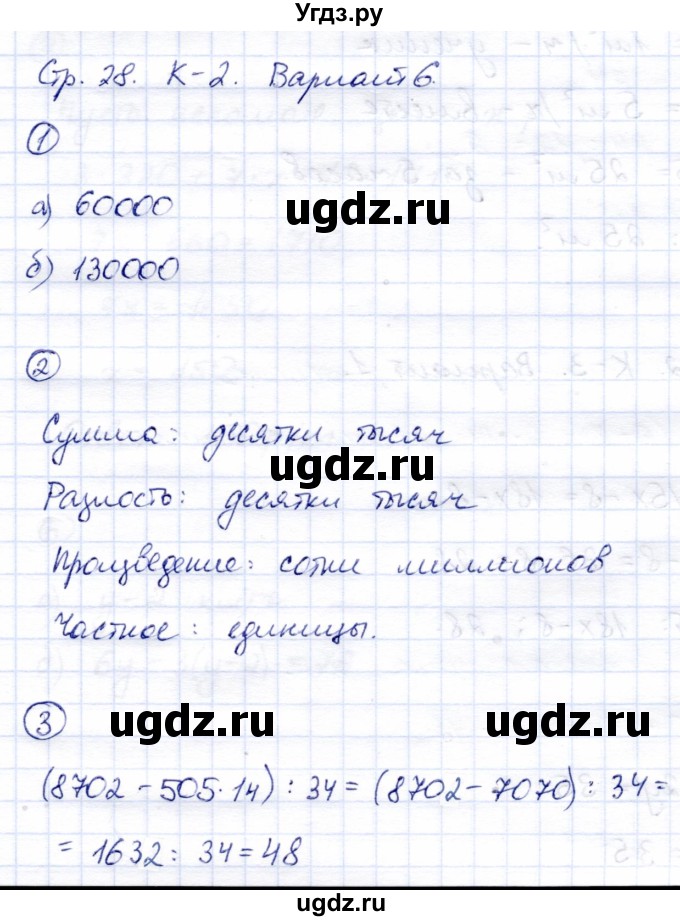 Угдз.ру
Стр. 28. К-2. Вариант 6.
1
а) 60000
ugdz.ru
б) 130000
2
Сумма: десятки тысяч
ugdz.ru
Разность: десятки тысяч
Произведение: сотни миллионов
Частное: единицы.
3
ugdz.ru ugdz.ru
(8702 - 505·14) : 34 = (8702 - 7070) : 34 =
= 1632 : 34 = 48
ugdz.ru